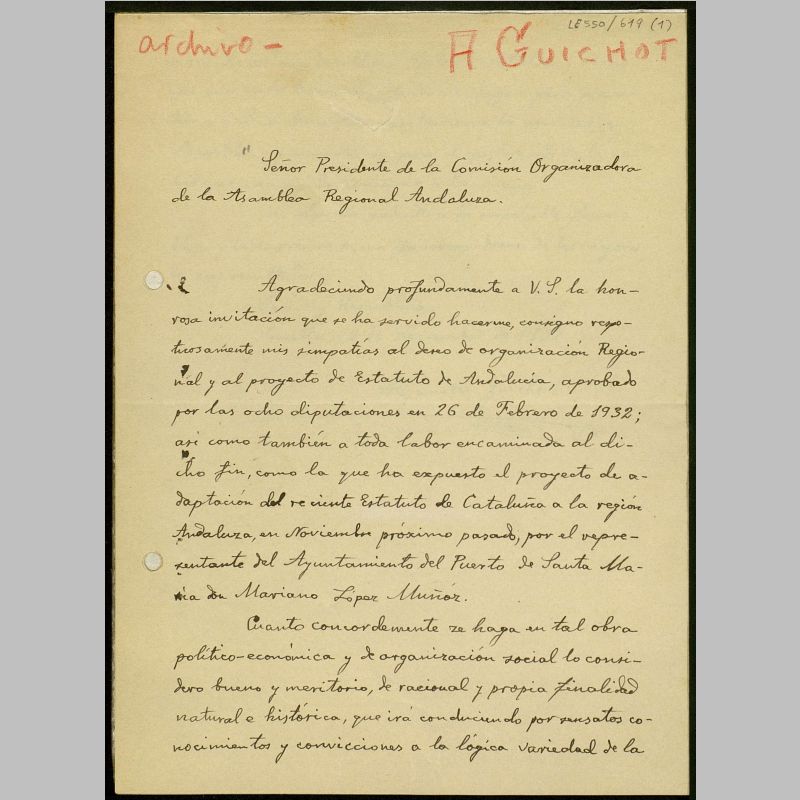 LE550/619 (1)
archivo - A GUICHOT
" Señor Presidente de la Comisión Organizadora
de la Asamblea Regional Andaluza.
Agradeciendo profundamente a V. S. la hon-
rosa invitación que se ha servido hacerme, consigno respe-
tuosamente mis simpatías al deseo de organización Regio-
nal y al proyecto de Estatuto de Andalucía, aprobado
por las ocho diputaciones en 26 de Febrero de 1932;
asi como también a toda labor encaminada al di-
cho fin, como la que ha expuesto el proyecto de a-
daptación del reciente Estatuto de Cataluña a la región
Andaluza, en Noviembre próximo pasado, por el repre-
sentante del Ayuntamiento del Puerto de Santa Ma-
ria don Mariano López Muñóz.
Cuanto concordemente se haga en tal obra
político-económica y de organización social lo consi-
dero bueno y meritorio, de racional y propia finalidad
natural e histórica, que irá conduciendo por sensatos co-
nocimientos y convicciones a la lógica variedad de la